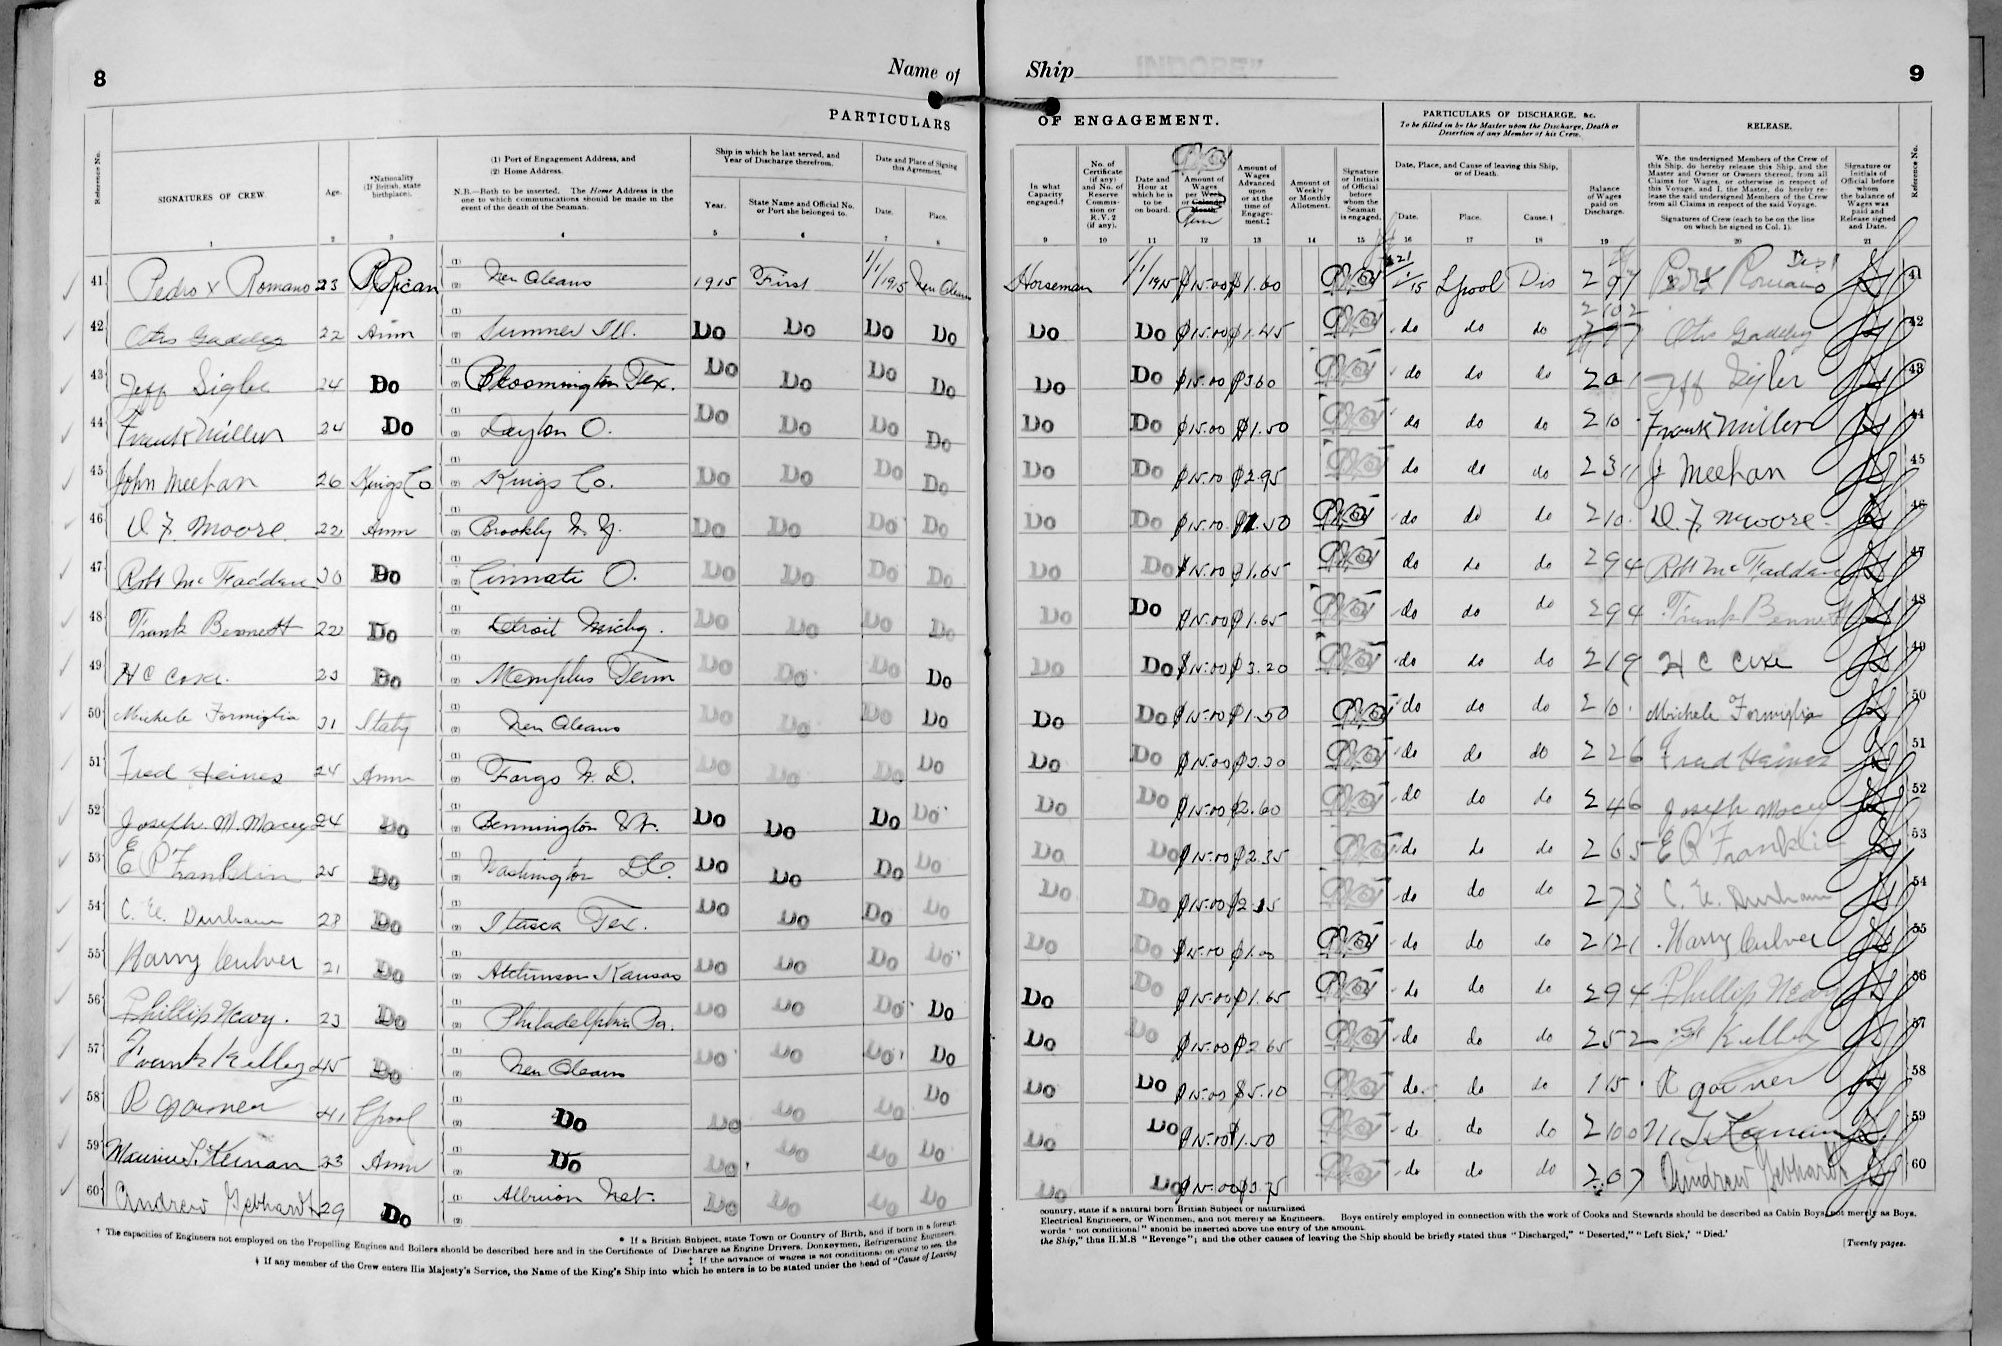 8
Name of
Ship INDORE"
9
PARTICULARS
OF ENGAGEMENT.
PARTICULARS OF DISCHARGE, &c.
To be filled in by the Master upon the Discharge, Death or Desertion of any Member of his Crew.
RELEASE.
Reference No.
SIGNATURES OF CREW.
Age.
*Nationality (If British, state birthplace).
(1) Port of Engagement Address, and
(2) Home Address.
N.B.—Both to be inserted. The Home Address is the one to which communications should be made in the event of the death of the Seaman.
Ship in which he last served, and Year of Discharge therefrom.
Year.
State Name and Official No. or Port she belonged to.
Date and Place of Signing this Agreement.
Date.
Place.
In what Capacity engaged.†
No. of Certificate (if any) and No. of Reserve Commission or R.V.2 (if any).
Date and Hour at which he is to be on board.
Amount of Wages per Week or Calendar Month.
Amount of Wages Advanced upon or at the time of Engagement.‡
Amount of Weekly or Monthly Allotment.
Signature or Initials of Official before whom the Seaman is engaged.
Date, Place, and Cause of leaving this Ship, or of Death.
Date.
Place.
Cause.
Balance of Wages paid on Discharge.
We, the undersigned Members of the Crew of this Ship, do hereby release this Ship, and the Master and Owner or Owners thereof, from all Claims for Wages, or otherwise in respect of this Voyage, and I, the Master, do hereby release the said undersigned Members of the Crew from all Claims in respect of the said Voyage.
Signatures of Crew (each to be on the line on which he signed in Col. 1).
Signature or Initials of Official before whom the balance of Wages was paid and Release signed and Date.
Reference No.
1 2 3 4 5 6 7 8 9 10 11 12 13 14 15 16 17 18 19 20 21
41 Pedro x Romano 23 P Rican New Oleans 1915 First 1/1/1915 New Oleans Horseman 1/1/1915 $15.00 $1.60 L'pool Dis 2 97 Romano 41
42 Otis Gaddey 22 Amn Sumner Ill. Do Do Do Do Do Do $15.00 $1.45 do do do Otis Gaddey 42
43 Jeff Sigler 24 Do Bloomington Tex. Do Do Do Do Do Do $15.00 $3.60 do do do 2 0 1 Jeff Sigler 43
44 Frank Miller 24 Do Dayton O. Do Do Do Do Do Do $15.00 $1.50 do do do 2 10 Frank Miller 44
45 John Meehan 26 Kings Co Kings Co. Do Do Do Do Do Do $15.00 $2.95 do do do 2 3 11 J Meehan 45
46 D. F. Moore 22 Amn Brookly N.Y. Do Do Do Do Do Do $15.00 $1.50 do do do 2 10 D. F. Moore 46
47 Robt McFaddan 30 Do Cinnati O. Do Do Do Do Do Do $15.00 $1.65 do do do 2 9 4 Robt McFaddan 47
48 Frank Bennett 22 Do Detroit Michg. Do Do Do Do Do Do $15.00 $1.65 do do do 2 9 4 Frank Bennett 48
49 H C Coxe 23 Do Memphis Tenn Do Do Do Do Do Do $15.00 $3.20 do do do 2 1 9 H C Coxe 49
50 Michele Formiglia 31 Italy New Oleans Do Do Do Do Do Do $15.00 $1.50 do do do 2 10 Michele Formiglia 50
51 Fred Heines 24 Amn Fargo N.D. Do Do Do Do Do Do $15.00 $3.30 do do do 2 2 6 Fred Heines 51
52 Joseph M. Macey 24 Do Bennington Vt. Do Do Do Do Do Do $15.00 $2.60 do do do 2 4 6 Joseph Macey 52
53 E P Franklin 25 Do Washington D.C. Do Do Do Do Do Do $15.00 $2.35 do do do 2 6 5 E P Franklin 53
54 C. E. Durham 28 Do Itasca Tex. Do Do Do Do Do Do $15.00 $2.15 do do do 2 7 3 C. E. Durham 54
55 Harry Culver 21 Do Atchinson Kansas Do Do Do Do Do Do $15.00 $1.00 do do do 2 12 1 Harry Culver 55
56 Phillip Newy. 23 Do Philadelphia Pa. Do Do Do Do Do Do $15.00 $1.65 do do do 2 9 4 Phillip Newy 56
57 Frank Kelley 45 Do New Oleans Do Do Do Do Do Do $15.00 $2.65 do do do 2 5 2 F Kelley 57
58 R Garner 41 L'pool Do Do Do Do Do Do Do $15.00 $5.10 do do do 1 15 R Garner 58
59 Maurice S. Keenan 23 Amn Do Do Do Do Do Do Do $15.00 $1.50 do do do 2 10 0 M S Keenan 59
60 Andrew Gebhardt 29 Do Albrion Neb. Do Do Do Do Do Do $15.00 $3.75 do do do 2 0 7 Andrew Gebhardt 60
* If a British Subject, state Town or Country of Birth, and if born in a foreign country, state if a natural born British Subject or naturalized
† The capacities of Engineers not employed on the Propelling Engines and Boilers should be described here and in the Certificate of Discharge as Engine Drivers, Donkeymen, Refrigerating Engineers, Electrical Engineers, or Winchmen, and not merely as Engineers. Boys entirely employed in connection with the work of Cooks and Stewards should be described as Cabin Boys, not merely as Boys.
‡ If the advance of wages is not conditional on going to sea the words "not conditional" should be inserted above the entry of the amount.
If any member of the Crew enters His Majesty's Service, the Name of the King's Ship into which he enters is to be stated under the head of "Cause of Leaving the Ship," thus H.M.S "Revenge"; and the other causes of leaving the Ship should be briefly stated thus "Discharged," "Deserted," "Left Sick," "Died."
[Twenty pages.